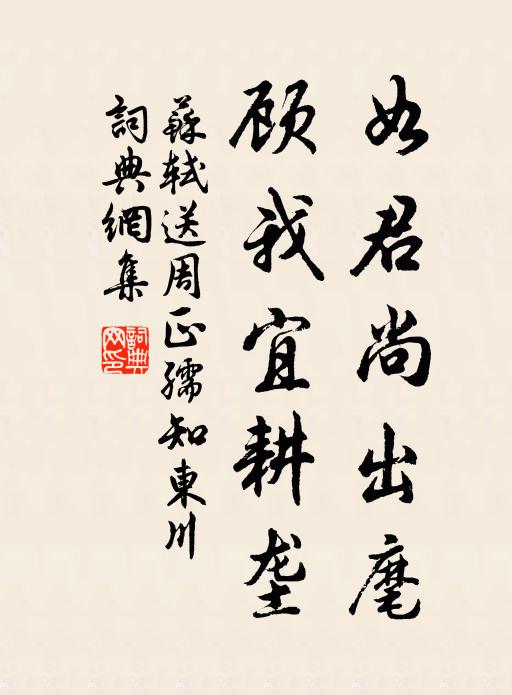 如君尚出麾
顾我宜耕垄
蘇軾送周正孺知東川
詞典網集
詞典網印